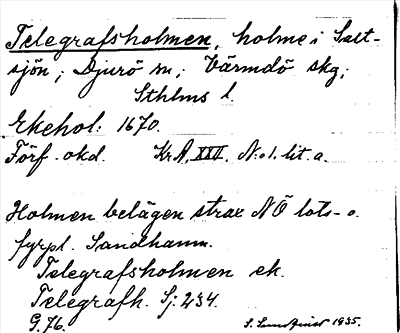 Telegrafsholmen, holme i Salt-
sjön; Djurö sn; Värmdö skg;
Sthlms l.
Ekehol: 1670.
Förf. okd. Kr.A. XXV. N:o 1. lit. a.
Holmen belägen strax NÖ lots- o.
fyrpl. Sandhamn.
Telegrafsholmen ek.
Telegrafh. Sj: 234.
G. 76. 1935.